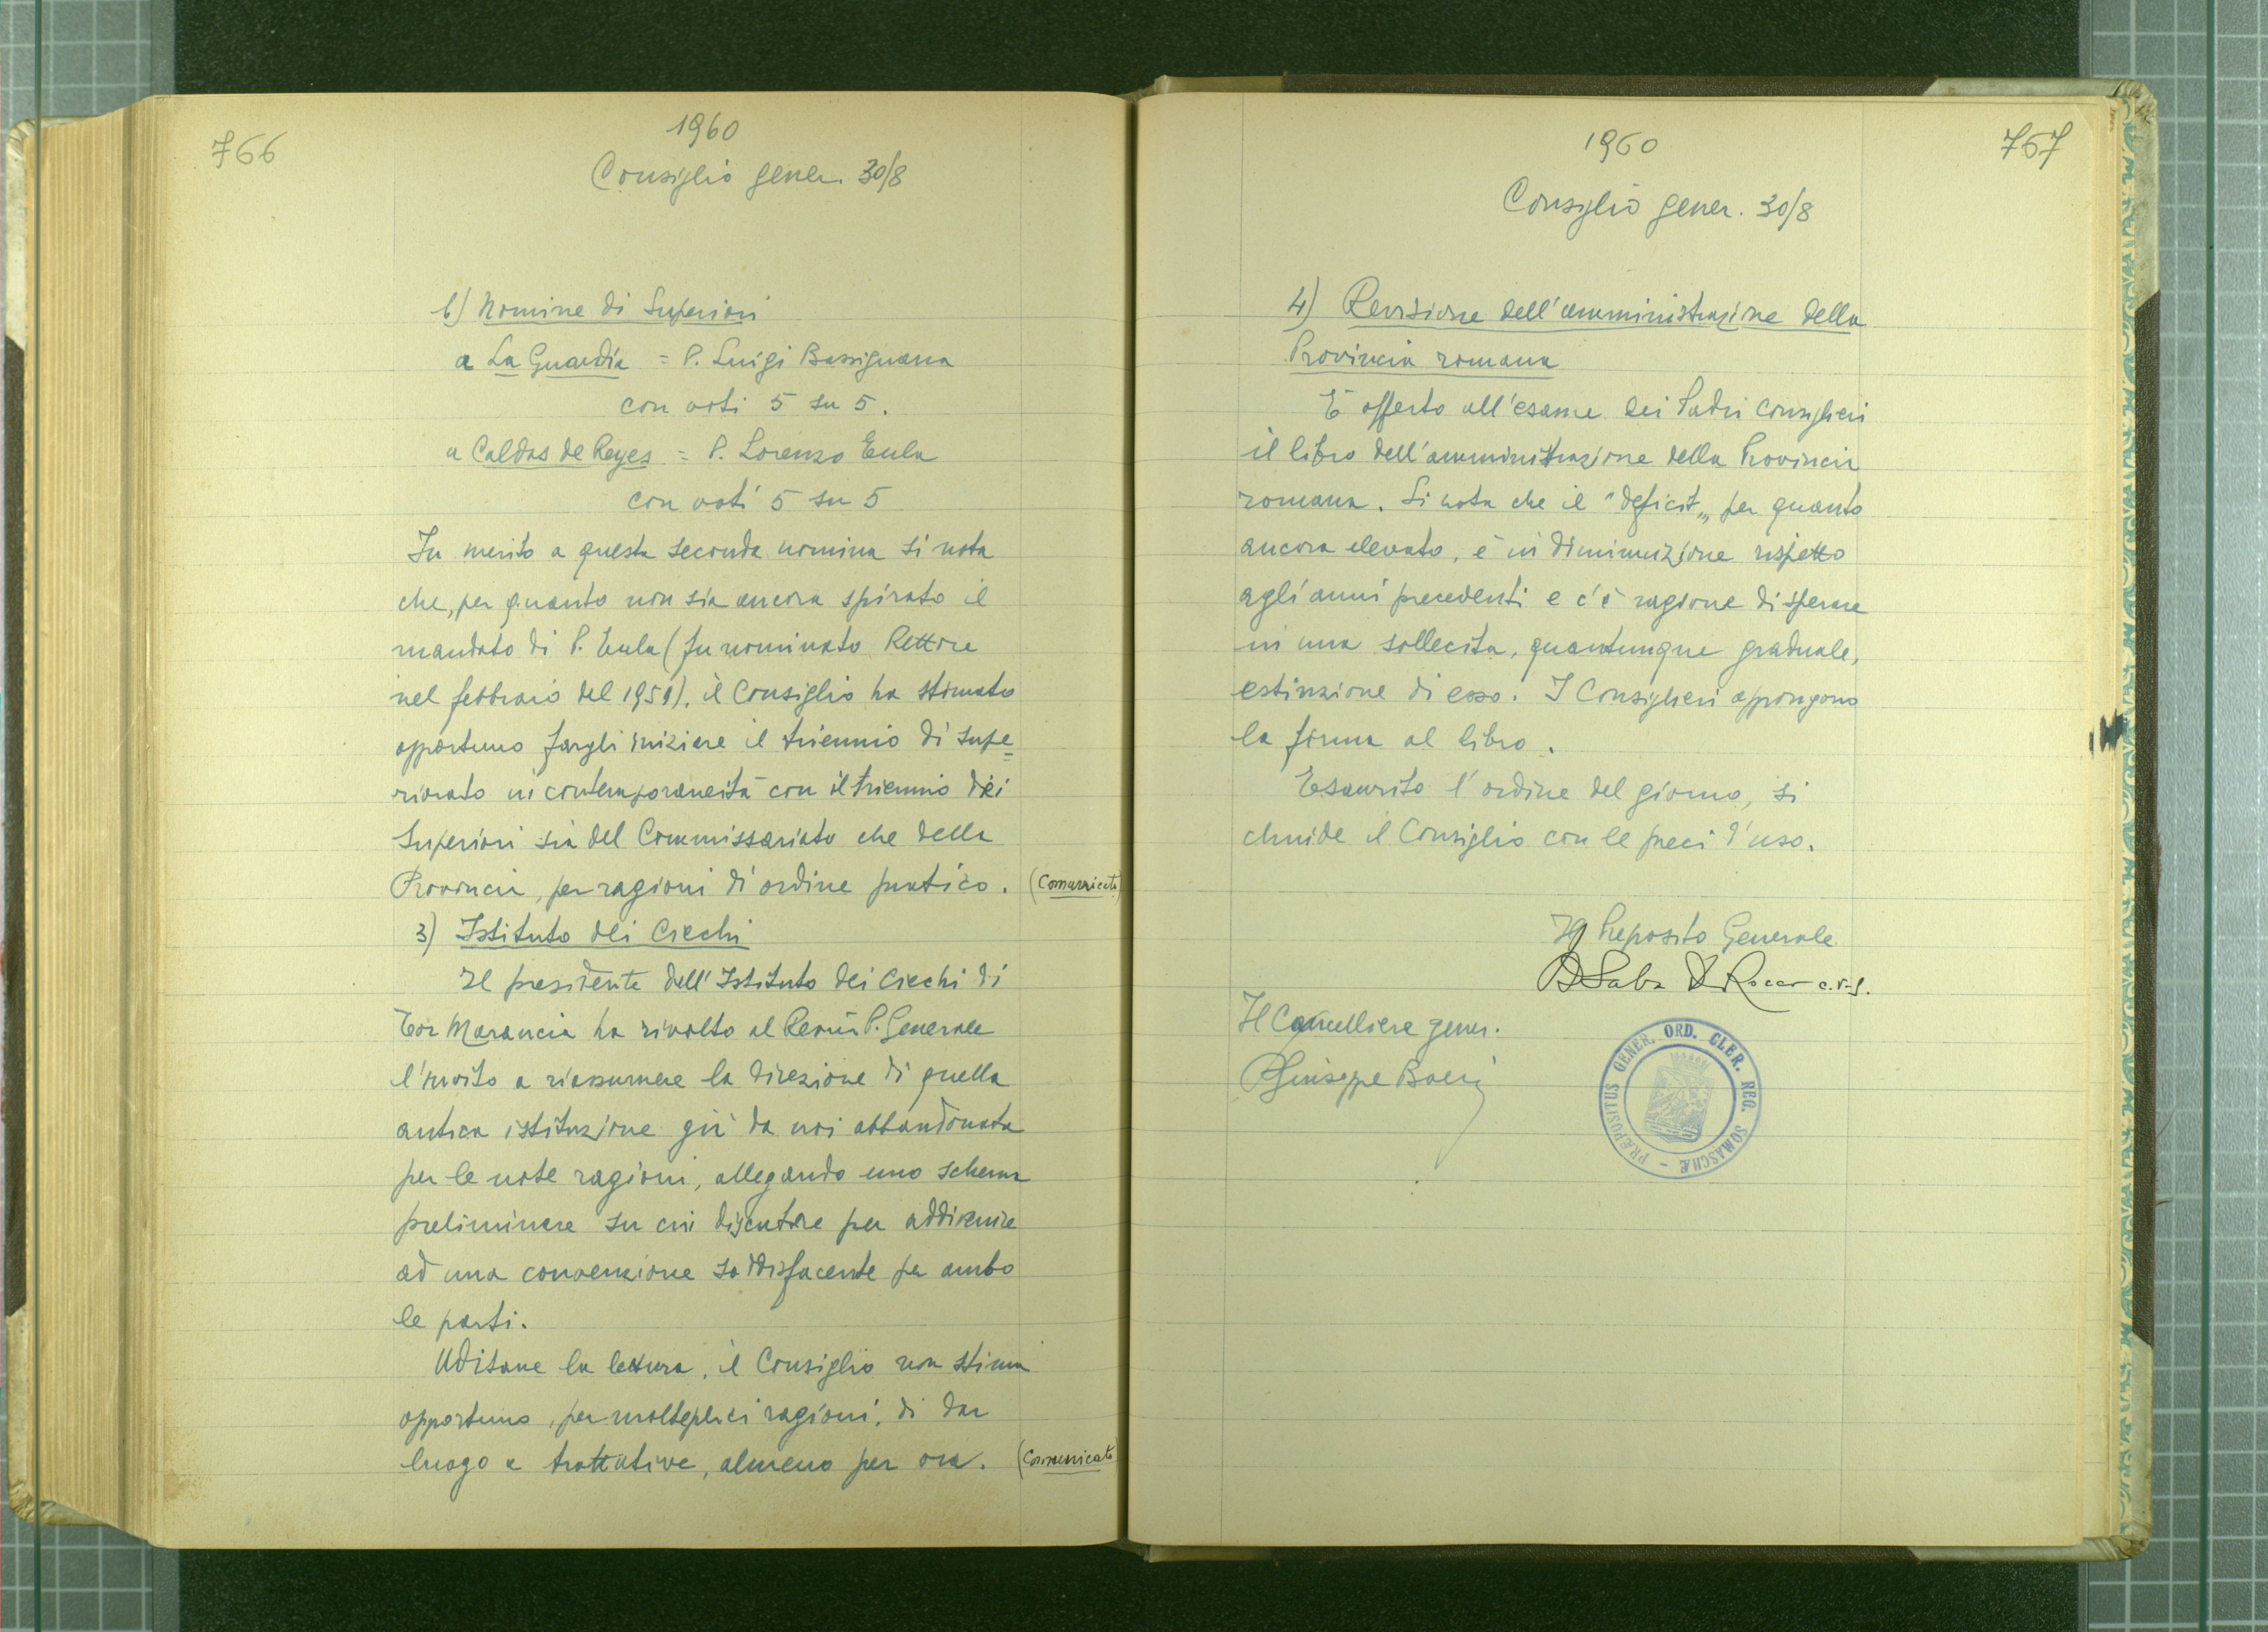 766
1960
Consiglio gener. 30/8
b) Nomine di Superiori
a La Guardia = P. Luigi Bassignana
con voti 5 su 5.
a Caldas de Reyes = P. Lorenzo Eula
con voti 5 su 5
In merito a questa seconda nomina si nota
che, per quanto non sia ancora spirato il
mandato di P. Eula (fu nominato Rettore
nel febbraio del 1959), il Consiglio ha stimato
opportuno fargli iniziare il triennio di supe=
riorato in contemporaneità con il triennio dei
Superiori sia del Commissariato che della
Provincia, per ragioni di ordine pratico. (Comunicato)
3) Istituto dei Ciechi
Il presidente dell'Istituto dei Ciechi di
Tor Marancia ha rivolto al Rev.mo P. Generale
l'invito a riassumere la direzione di quella
antica istituzione già da noi abbandonata
per le note ragioni, allegando uno schema
preliminare su cui discutere per addivenire
ad una convenzione soddisfacente per ambo
le parti.
Uditane la lettura, il Consiglio non stima
opportuno, per molteplici ragioni, di dar
luogo a trattative, almeno per ora. (Comunicato)
767
1960
Consiglio gener. 30/8
4) Revisione dell'amministrazione della
Provincia romana
È offerto all'esame dei Padri Consiglieri
il libro dell'amministrazione della Provincia
romana. Si nota che il "deficit„ per quanto
ancora elevato, è in diminuzione rispetto
agli anni precedenti e c'è ragione di sperare
in una sollecita, quantunque graduale,
estinzione di esso. I Consiglieri appongono
la firma al libro.
Esaurito l'ordine del giorno, si
chiude il Consiglio con le preci d'uso.
Il Preposito Generale
P Saba De Rocco c.r.s.
Il Cancelliere gener.
P Giuseppe Boeris
PRÆPOSITUS GENER. ORD. CLER. REG. SOMASCHÆ -